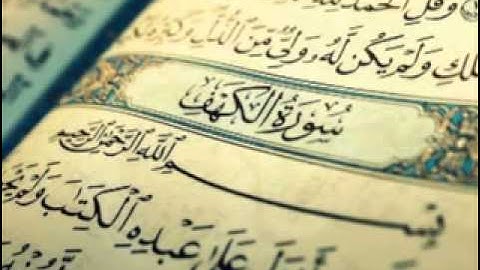 وَقُلِ الْحَمْدُ لِلَّهِ
وَلَمْ يَكُن لَّهُ وَلِيٌّ مِّنَ الذُّلِّ وَكَبِّرْهُ
سُورَةُ الْكَهْفِ
بِسْمِ اللَّهِ الرَّحْمَٰنِ الرَّحِيمِ
عَلَىٰ عَبْدِهِ الْكِتَابَ وَلَمْ